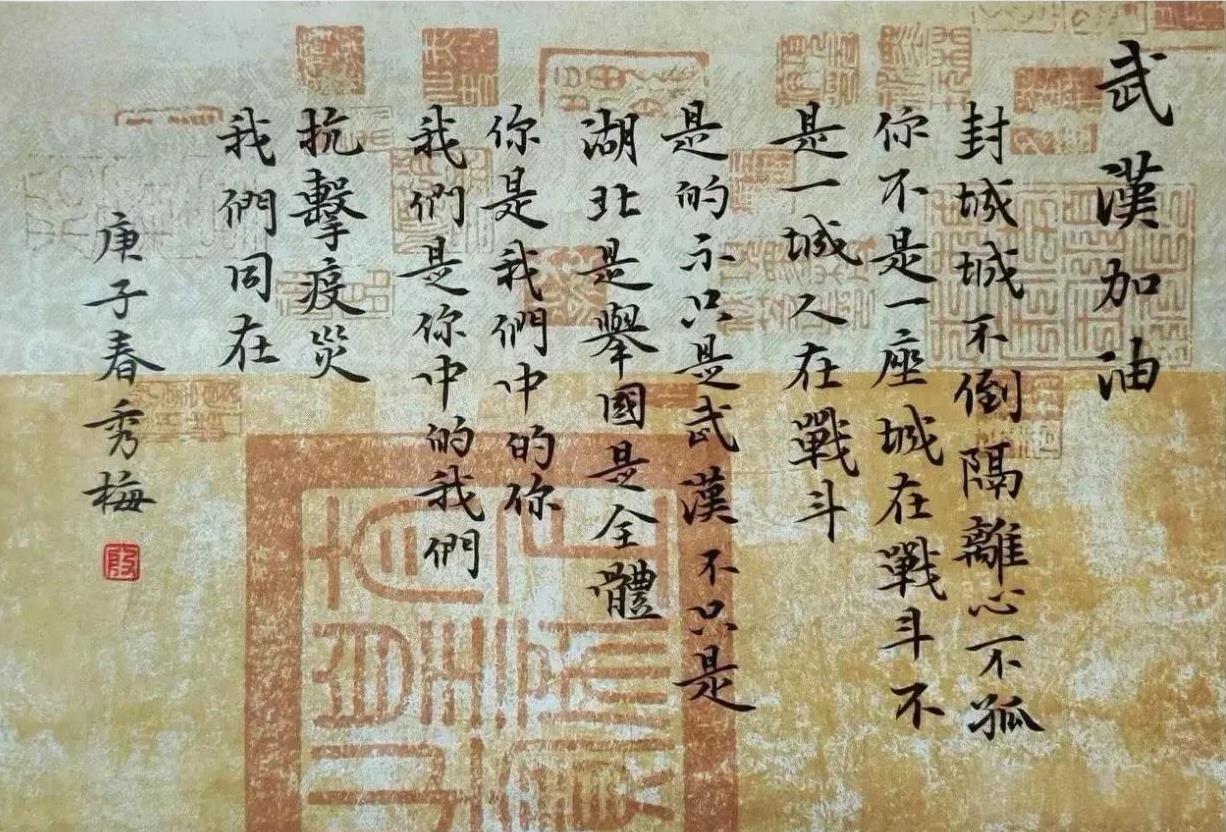 武漢加油
封城城不倒隔離心不孤
你不是一座城在戰斗不
是一城人在戰斗
是的不只是武漢不只是
湖北是舉國是全體
你是我們中的你
我們是你中的我們
抗擊疫災
我們同在
庚子春秀梅